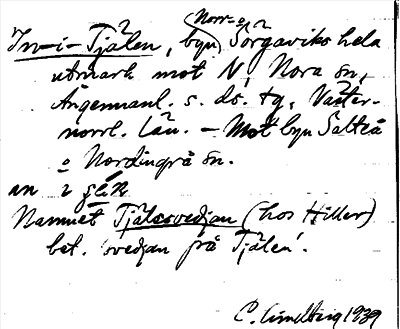 Norr- o.
In-i-Tjälen, byn Sörgaviks hela
utmark mot N, Nora sn,
Ångermanl. s. ds. tg, Väster-
norrl. län. - Mot byn Saltså
o Nordingrå sn.
an 2
Namnet Tjälssvedjan (hos Hiller)
bet. 'svedjan på Tjälen'.
C. Lindberg 1939